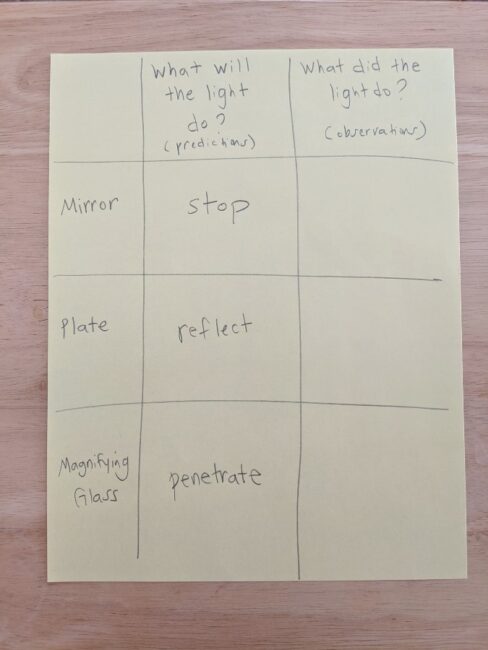 What will
the light
do?
(predictions)
What did the
light do?
(observations)
Mirror
stop
Plate
reflect
Magnifying
Glass
penetrate